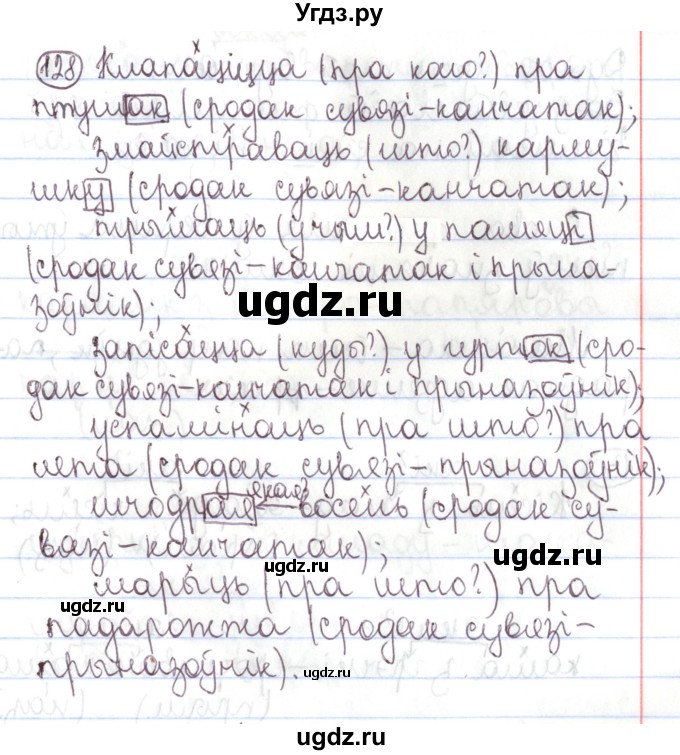 Угdz.ру
128 Клапаціцца (пра каго?) пра
птушак (сродак сувязі-канчатак);
змайстраваць (што?) карму-
шку (сродак сувязі-канчатак);
трымаць (у чым?) у памяці
(сродак сувязі-канчатак і прына-
зоўнік);
ugdz.ru
запісацца (куды?) у гурток (сро-
дак сувязі-канчатак і прыназоўнік);
успамінаць (пра што?) пра
лета (сродак сувязі-прыназоўнік);
якая?
шчодрая восень (сродак су-
вязі-канчатак);
ugdz.ru
марыць (пра што?) пра
ugdz.ru
падарожжа (сродак сувязі-
прыназоўнік).
ugdz.ru